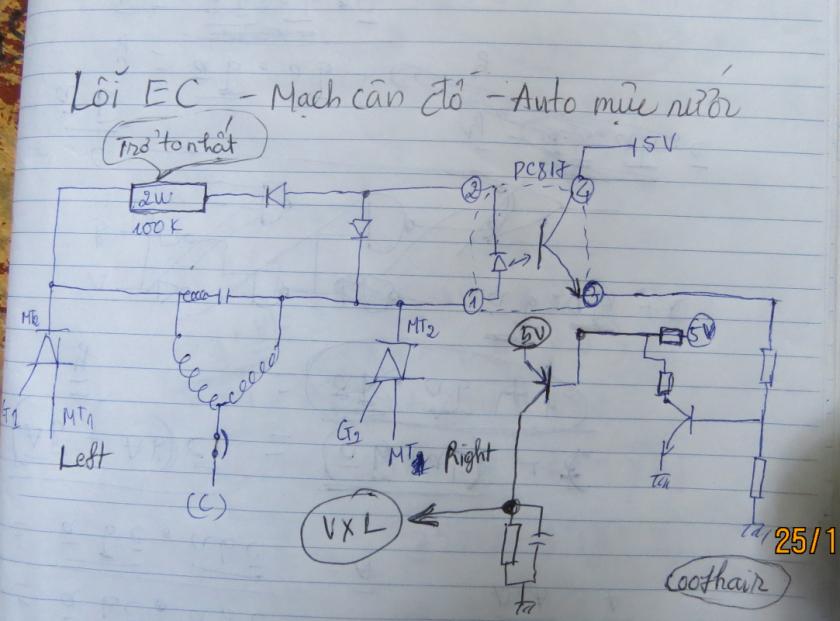 Lỗi EC - Mạch cân đồ - Auto mực nước
Trở to nhất
5V
PC817
2W
2
4
100K
1
3
MT2
MT2
5V
5V
G1
MT1
G2
MT1
Left
Right
(C)
VXL
25/1
Coothair